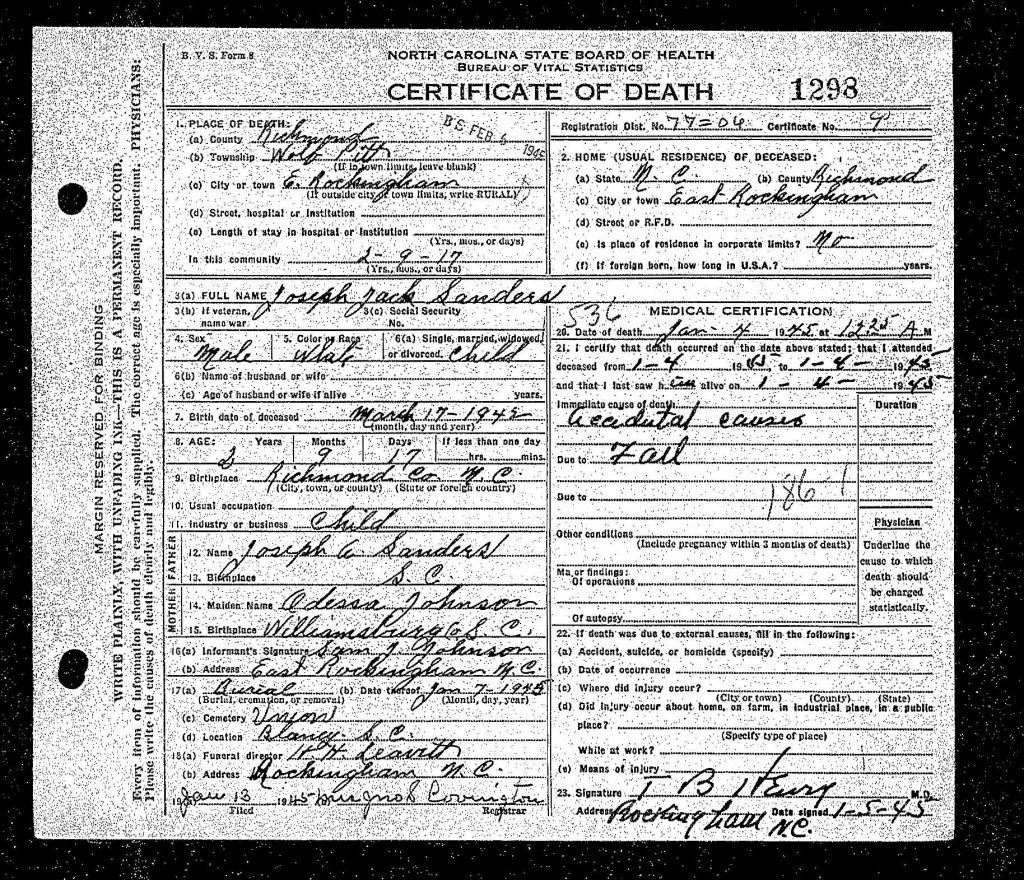 B. V. S. Form 8
NORTH CAROLINA STATE BOARD OF HEALTH
BUREAU OF VITAL STATISTICS
CERTIFICATE OF DEATH 1298
MARGIN RESERVED FOR BINDING
WRITE PLAINLY, WITH UNFADING INK—THIS IS A PERMANENT RECORD.
Every item of information should be carefully supplied. The correct age is especially important. PHYSICIANS:
Please write the causes of death clearly and legibly.
1. PLACE OF DEATH:
(a) County Richmond
(b) Township Wolf Pitt
(If in town limits, leave blank)
(c) City or town E. Rockingham
(If outside city or town limits, write RURAL)
(d) Street, hospital or institution
(e) Length of stay in hospital or institution
(Yrs., mos., or days)
In this community 2-9-17
(Yrs., mos., or days)
BS FEB 1945
Registration Dist. No. 77=04 Certificate No. 9
2. HOME (USUAL RESIDENCE) OF DECEASED:
(a) State N. C. (b) County Richmond
(c) City or town East Rockingham
(d) Street or R.F.D.
(e) Is place of residence in corporate limits? No
(f) If foreign born, how long in U.S.A.? years.
3(a) FULL NAME Joseph Jack Sanders
3(b) If veteran, name war 3(c) Social Security No.
4. Sex Male 5. Color or Race White 6(a) Single, married, widowed, or divorced. Child
6(b) Name of husband or wife
(c) Age of husband or wife if alive years.
7. Birth date of deceased March 17-1942
(month, day and year)
8. AGE: Years Months Days If less than one day
2 9 17 hrs. mins.
9. Birthplace Richmond Co. N.C.
(City, town, or county) (State or foreign country)
10. Usual occupation
11. Industry or business Child
FATHER
12. Name Joseph A. Sanders
13. Birthplace S. C.
MOTHER
14. Maiden Name Odessa Johnson
15. Birthplace Williamsburg Co S. C.
16(a) Informant's Signature Sam J. Johnson
(b) Address East Rockingham N.C.
17(a) Burial (b) Date thereof Jan 7-1945
(Burial, cremation, or removal) (Month, day, year)
(c) Cemetery Union
(d) Location Blaney S.C.
18(a) Funeral director Leavitt
(b) Address Rockingham N.C.
19 Jan 13 1945 Covington
Filed Registrar
536
MEDICAL CERTIFICATION
20. Date of death Jan 4 1945 at 12 25 A M
21. I certify that death occurred on the date above stated; that I attended
deceased from 1-4 1945 to 1-4- 1945
and that I last saw h alive on 1-4- 1945
Immediate cause of death Duration
Accidental causes
Due to Fall
Due to
186
Other conditions
(Include pregnancy within 3 months of death)
Major findings:
Of operations
Of autopsy
Physician
Underline the
cause to which
death should
be charged
statistically.
22. If death was due to external causes, fill in the following:
(a) Accident, suicide, or homicide (specify)
(b) Date of occurrence
(c) Where did injury occur?
(City or town) (County) (State)
(d) Did injury occur about home, on farm, in industrial place, in a public
place?
(Specify type of place)
While at work?
(e) Means of injury
23. Signature T B Henry M.D.
Address Rockingham N.C. Date signed 1-5-45